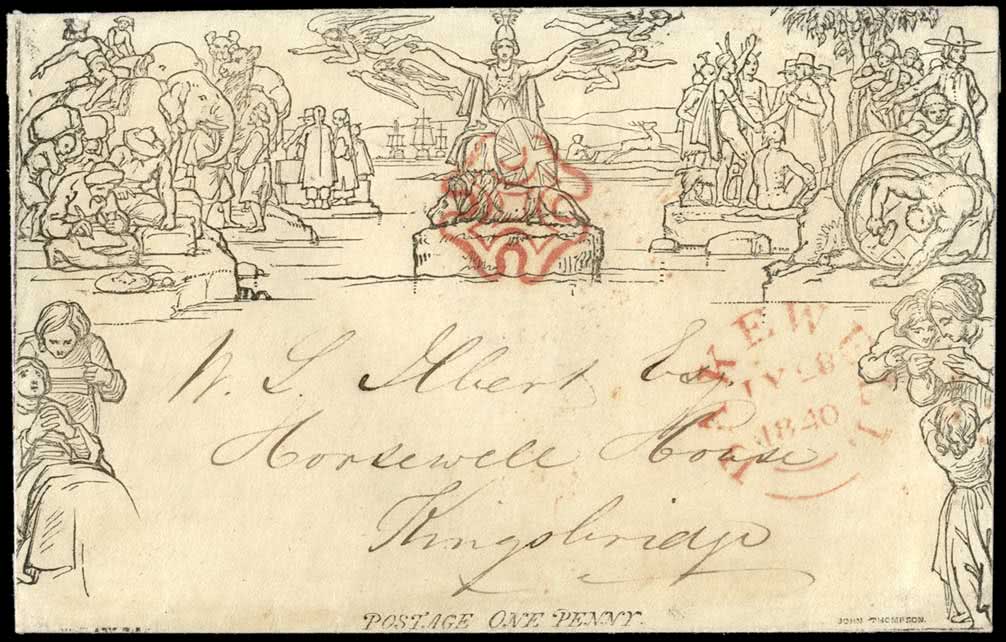 W. L. Ilbert Esq.
Horsewell House
Kingsbridge
1840
POSTAGE ONE PENNY.
JOHN THOMPSON.